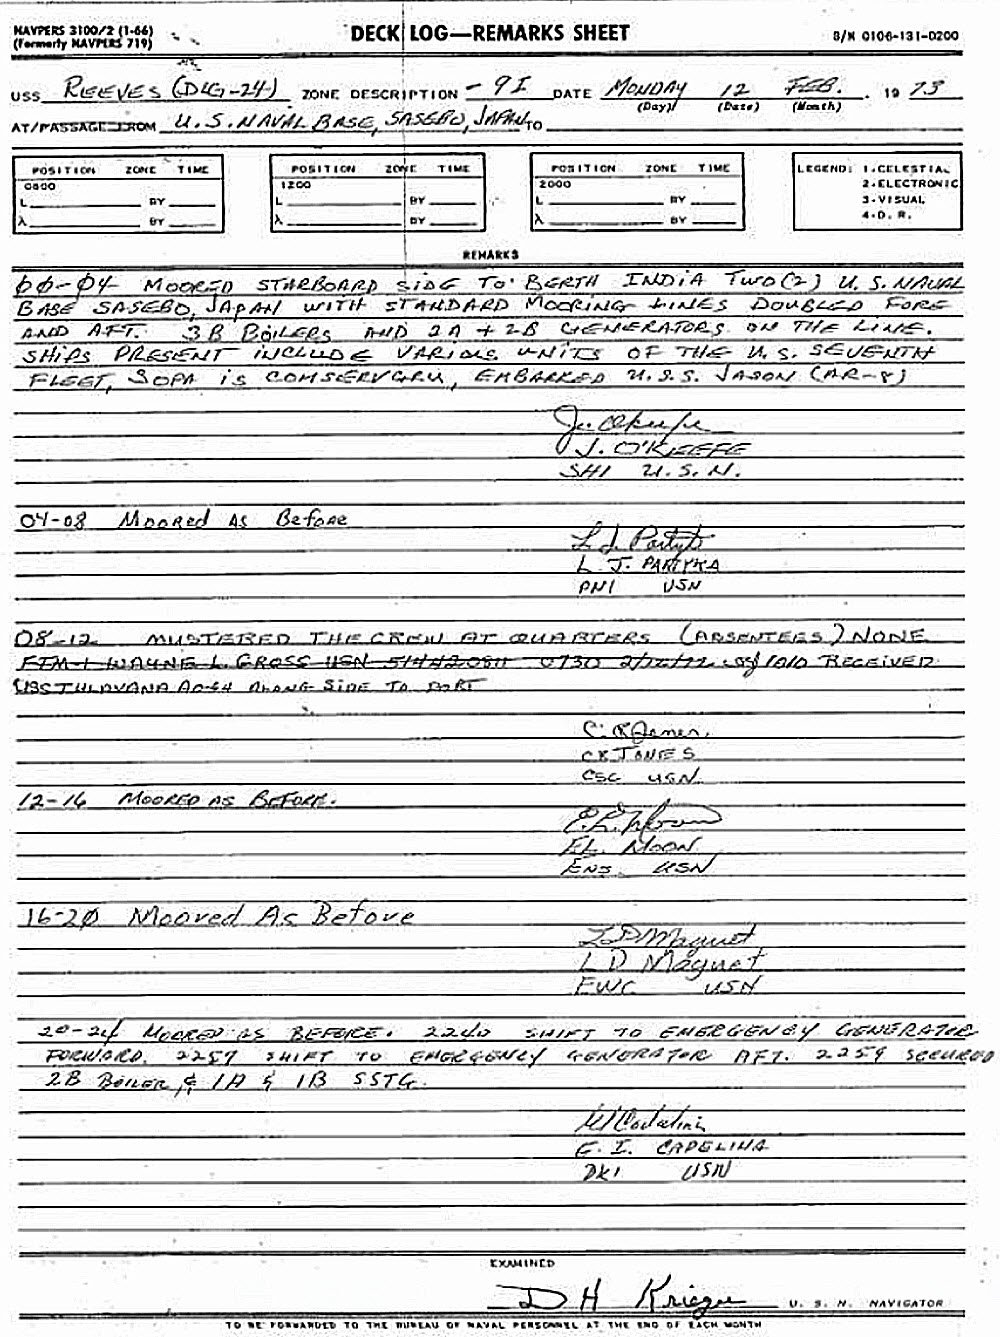 NAVPERS 3100/2 (1-66)
(Formerly NAVPERS 719)
DECK LOG—REMARKS SHEET
S/N 0106-131-0200
USS REEVES (DLG-24) ZONE DESCRIPTION -9I DATE MONDAY 12 FEB. 1973
(Day) (Date) (Month)
AT/PASSAGE FROM U.S. NAVAL BASE, SASEBO, JAPAN TO
POSITION ZONE TIME
0800
L BY
λ BY
POSITION ZONE TIME
1200
L BY
λ BY
POSITION ZONE TIME
2000
L BY
λ BY
LEGEND: 1-CELESTIAL
2-ELECTRONIC
3-VISUAL
4-D. R.
REMARKS
00-04 MOORED STARBOARD SIDE TO BERTH INDIA TWO (2) U.S. NAVAL
BASE SASEBO, JAPAN WITH STANDARD MOORING LINES DOUBLED FORE
AND AFT. 3B BOILERS AND 2A + 2B GENERATORS ON THE LINE.
SHIPS PRESENT INCLUDE VARIOUS UNITS OF THE U.S. SEVENTH
FLEET, SOPA IS COMSERVGRU, EMBARKED U.S.S. JASON (AR-8)
J. O'Keefe
J. O'KEEFE
SH1 U.S.N.
04-08 Moored As Before
L J Partyka
L J. PARTYKA
PN1 USN
08-12 MUSTERED THE CREW AT QUARTERS (ABSENTEES) NONE
FTM-1 WAYNE L. GROSS USN 0730 1010 RECEIVED
USS AO-64 ALONG SIDE TO PORT
C R Jones
C R JONES
CSC USN
12-16 MOORED AS BEFORE.
E. L. Moon
E.L. MOON
ENS. USN
16-20 Moored As Before
L D Magnet
L D Magnet
EWC USN
20-24 MOORED AS BEFORE. 2240 SHIFT TO EMERGENCY GENERATOR
FORWARD. 2257 SHIFT TO EMERGENCY GENERATOR AFT. 2259 SECURED
2B BOILER & 1A & 1B SSTG.
E. I. CAPELINA
DK1 USN
EXAMINED
D H Krieger U. S. N. NAVIGATOR
TO BE FORWARDED TO THE BUREAU OF NAVAL PERSONNEL AT THE END OF EACH MONTH